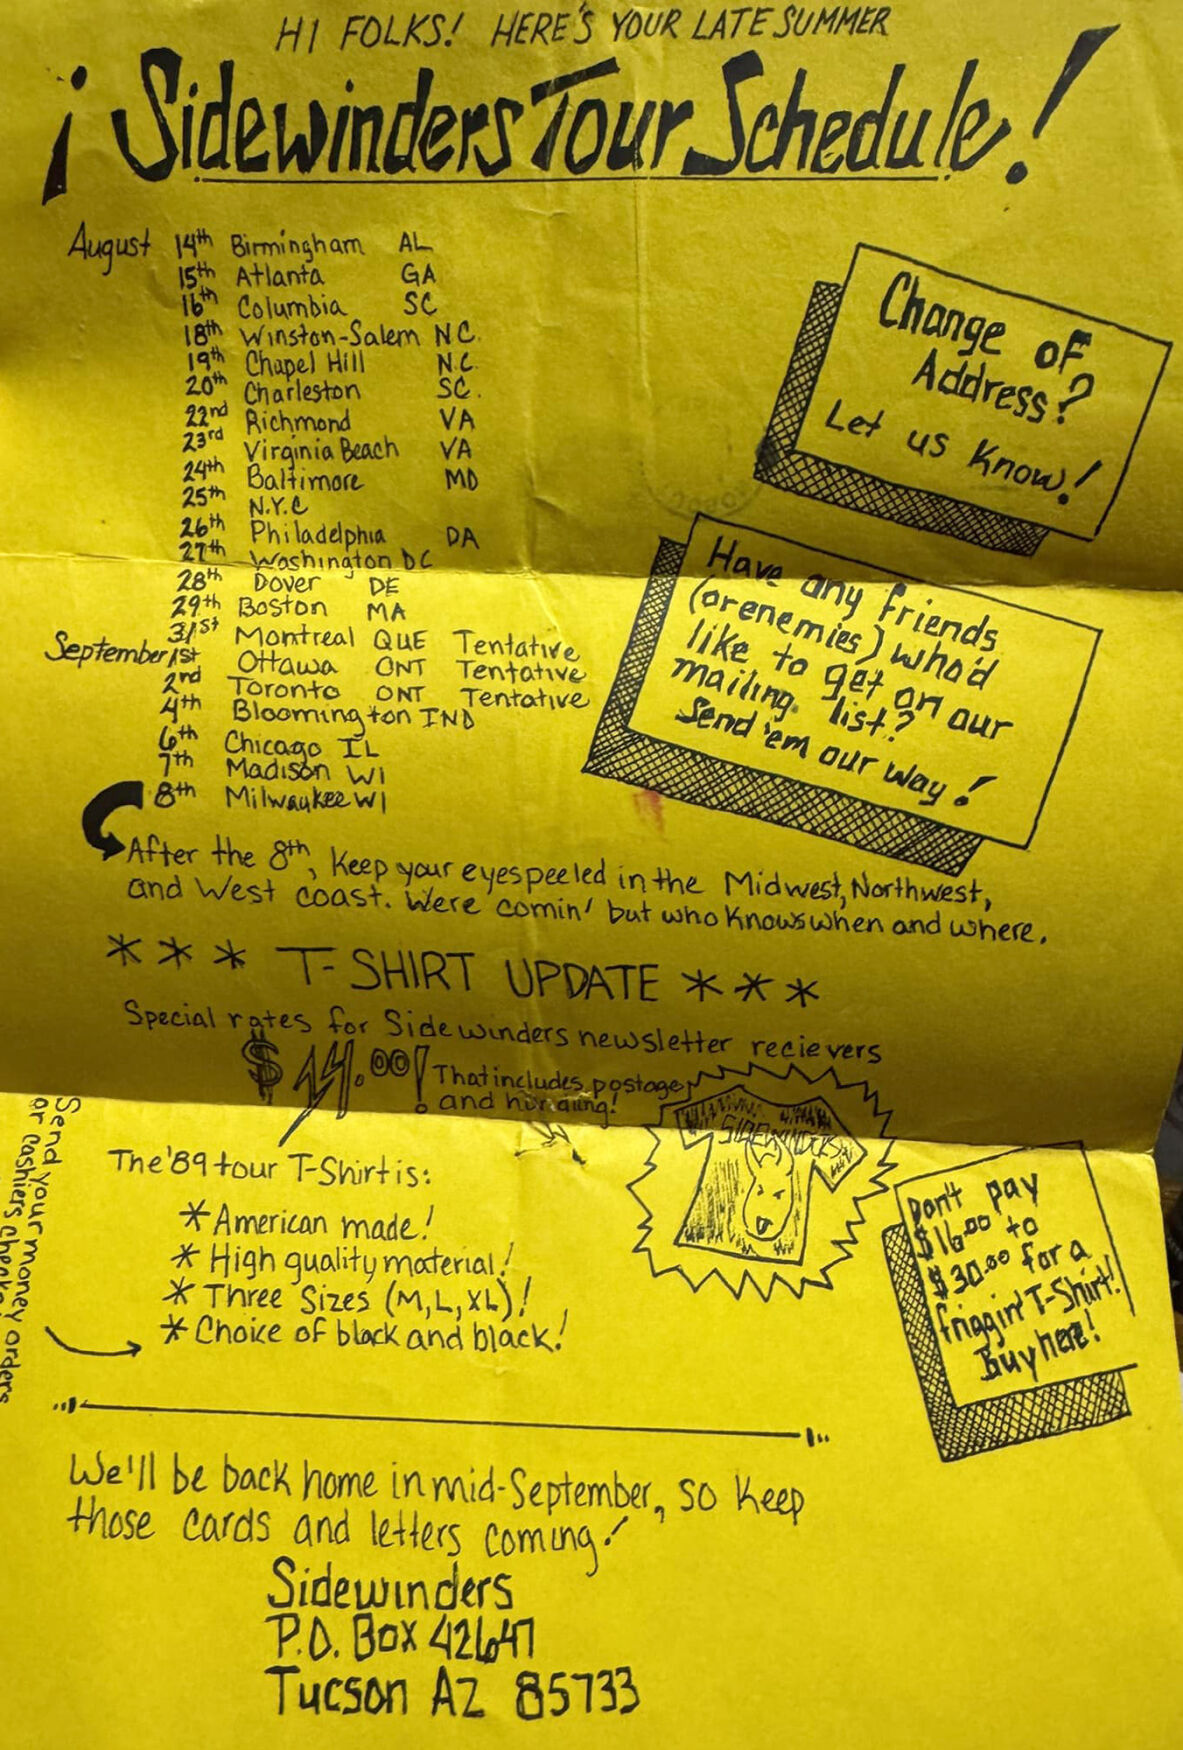 HI FOLKS! HERE'S YOUR LATE SUMMER
¡Sidewinders Tour Schedule!
August 14th Birmingham AL
15th Atlanta GA
16th Columbia SC
18th Winston-Salem N.C.
19th Chapel Hill N.C.
20th Charleston SC.
22nd Richmond VA
23rd Virginia Beach VA
24th Baltimore MD
25th N.Y.C
26th Philadelphia PA
27th Washington DC
28th Dover DE
29th Boston MA
31st Montreal QUE Tentative
September 1st Ottawa ONT Tentative
2nd Toronto ONT Tentative
4th Bloomington IND
6th Chicago IL
7th Madison WI
8th Milwaukee WI
Change of
Address?
Let us know!
Have any friends
(or enemies) who'd
like to get on our
mailing list?
Send 'em our way!
After the 8th, keep your eyes peeled in the Midwest, Northwest,
and West coast. We're comin' but who knows when and where.
*** T-SHIRT UPDATE ***
Special rates for Sidewinders newsletter recievers
$14.00! That includes postage
and handling!
SIDEWINDERS
The '89 tour T-Shirt is:
* American made!
* High quality material!
* Three Sizes (M, L, XL)!
* Choice of black and black!
Send your money orders
or cashiers checks
Don't pay
$16.00 to
$30.00 for a
friggin' T-Shirt!
Buy here!
We'll be back home in mid-September, so keep
those cards and letters coming!
Sidewinders
P.O. Box 42647
Tucson AZ 85733